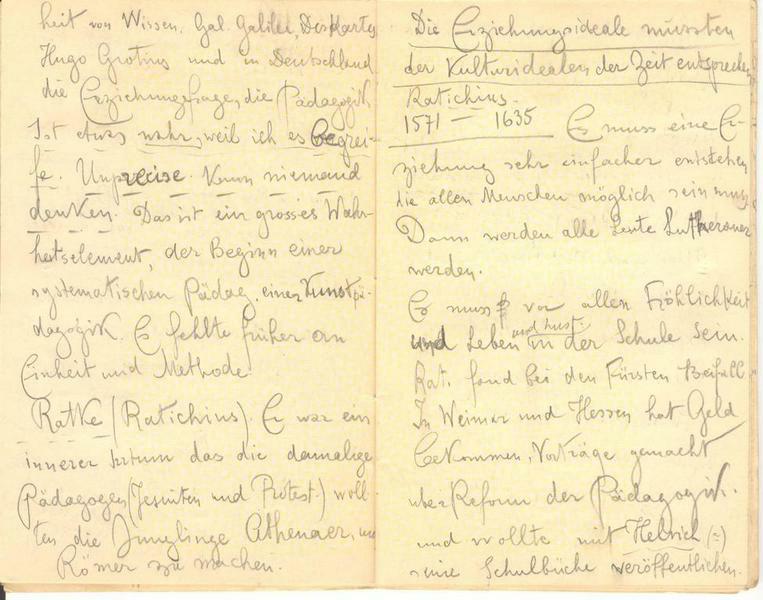 heit von Wissen. Gal. Galilei, Deskartes
Hugo Grotius und in Deutschland
die Erziehungsfrage, die Pädagogik
Ist etwas wahr, weil ich es begrei-
fe. Unpreise. Kann niemand
denken. Das ist ein grosses Wahr-
heitselement, der Beginn einer
systematischen Pädag. einer Kunstpä-
dagogik. Es fehlte früher an
Einheit und Methode.
Ratke (Ratichius). Er war ein
innerer Irrtum das die damalige
Pädagogen (Jesuiten und Protest.) woll-
ten die Junglinge Athenaer, und
Römer zu machen.
Die Erziehungsideale mussten
der Kulturidealen der Zeit entsprechen
Ratichius.
1571 — 1635 Es muss eine Er-
ziehung sehr einfacher entstehen
die allen Menschen möglich sein muss
Dann werden alle Leute Lutheraner
werden.
Es muss vor allen Fröhlichkeit
und Leben und Lust in der Schule sein.
Rat. fand bei den Fürsten Beifall
In Weimar und Hessen hat Geld
bekommen, Vorträge gemacht
uber Reform der Pädagogik.
und wollte mit Helvich (?)
seine Schulbüche veröffentlichen.